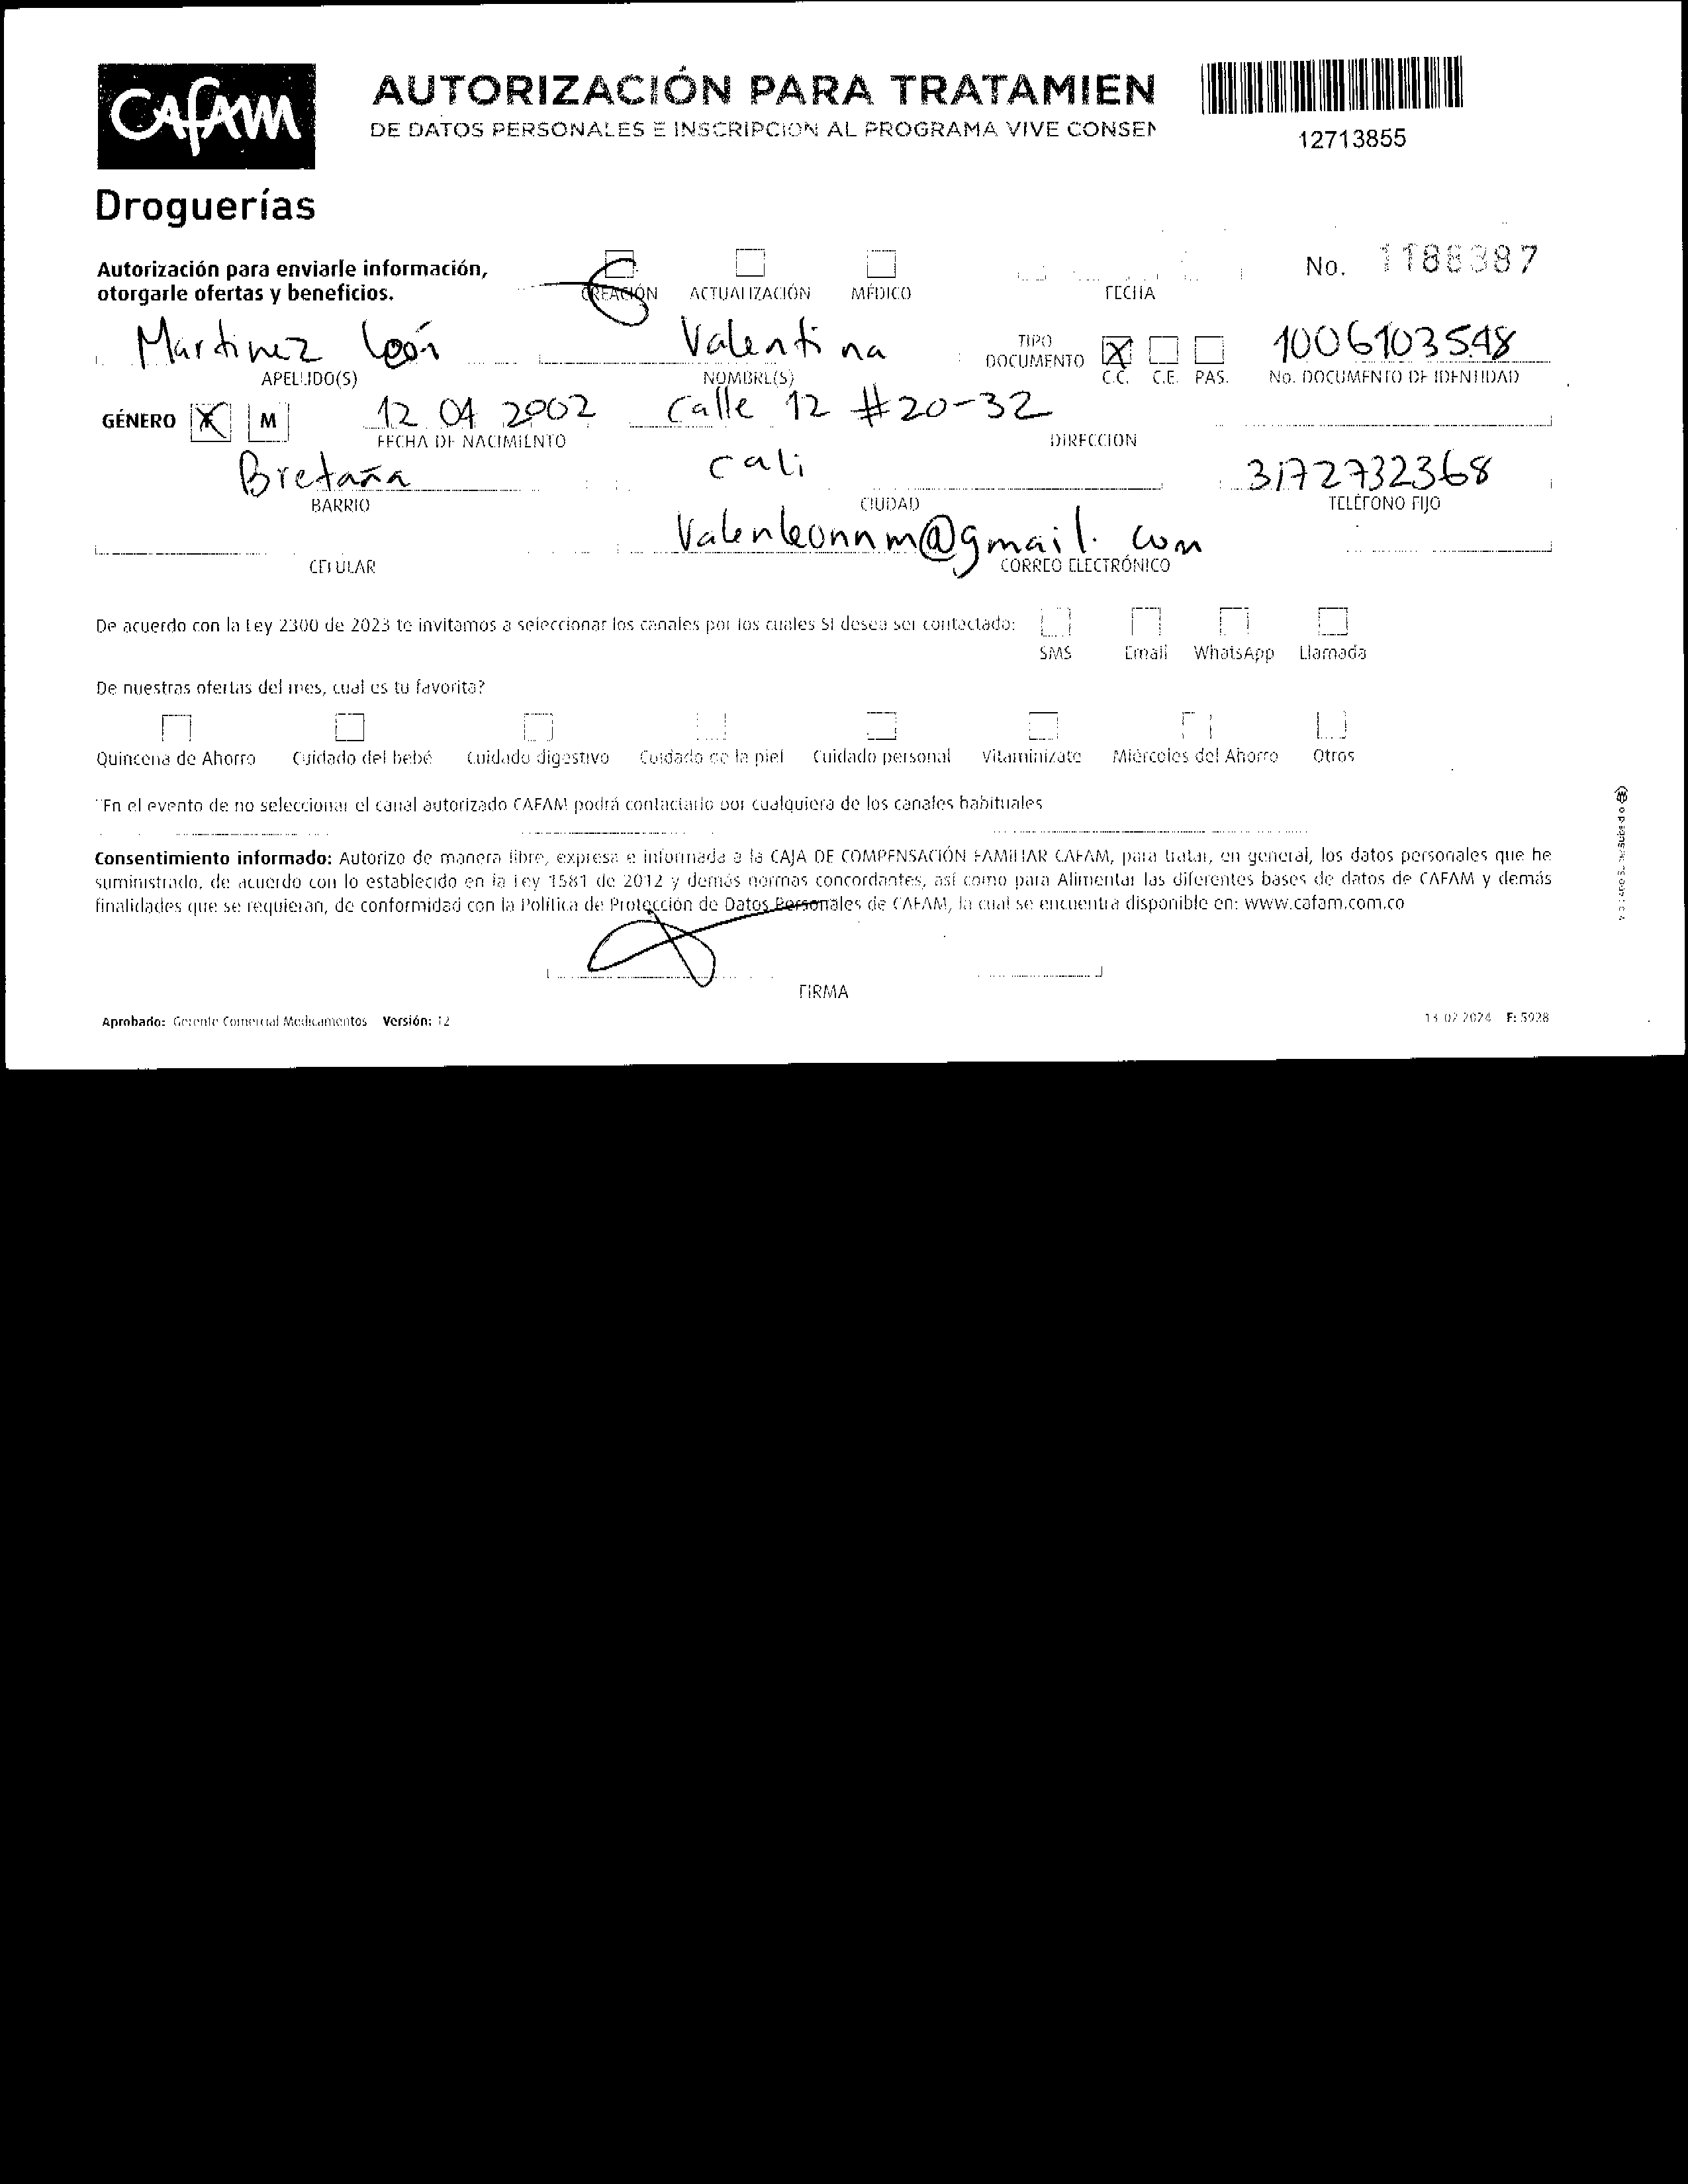 CAFAM
AUTORIZACIÓN PARA TRATAMIEN
DE DATOS PERSONALES E INSCRIPCION AL PROGRAMA VIVE CONSEN
12713855
Droguerías
Autorización para enviarle información,
otorgarle ofertas y beneficios.
CREACIÓN ACTUALIZACIÓN MÉDICO FECHA No. 1188387
Martinez León Valentina TIPO DOCUMENTO 1006103548
APELLIDO(S) NOMBRE(S) C.C. C.E. PAS. No. DOCUMENTO DE IDENTIDAD
GÉNERO M 12 04 2002 Calle 12 #20-32
FECHA DE NACIMIENTO DIRECCION
Bretaña Cali 3172732368
BARRIO CIUDAD TELÉFONO FIJO
Valenleonnm@gmail.com
CELULAR CORREO ELECTRÓNICO
De acuerdo con la Ley 2300 de 2023 te invitamos a seleccionar los canales por los cuales SI desea ser contactado:
SMS Email WhatsApp Llamada
De nuestras ofertas del mes, cual es tu favorita?
Quincena de Ahorro Cuidado del bebé Cuidado digestivo Cuidado de la piel Cuidado personal Vitaminízate Miércoles del Ahorro Otros
"En el evento de no seleccionar el canal autorizado CAFAM podrá contactarlo por cualquiera de los canales habituales
Consentimiento informado: Autorizo de manera libre, expresa e informada a la CAJA DE COMPENSACIÓN FAMILIAR CAFAM, para tratar, en general, los datos personales que he
suministrado, de acuerdo con lo establecido en la Ley 1581 de 2012 y demás normas concordantes, así como para Alimentar las diferentes bases de datos de CAFAM y demás
finalidades que se requieran, de conformidad con la Política de Protección de Datos Personales de CAFAM, la cual se encuentra disponible en: www.cafam.com.co
FIRMA
Aprobado: Gerente Comercial Medicamentos Versión: 12
13 02 2024 F: 5928